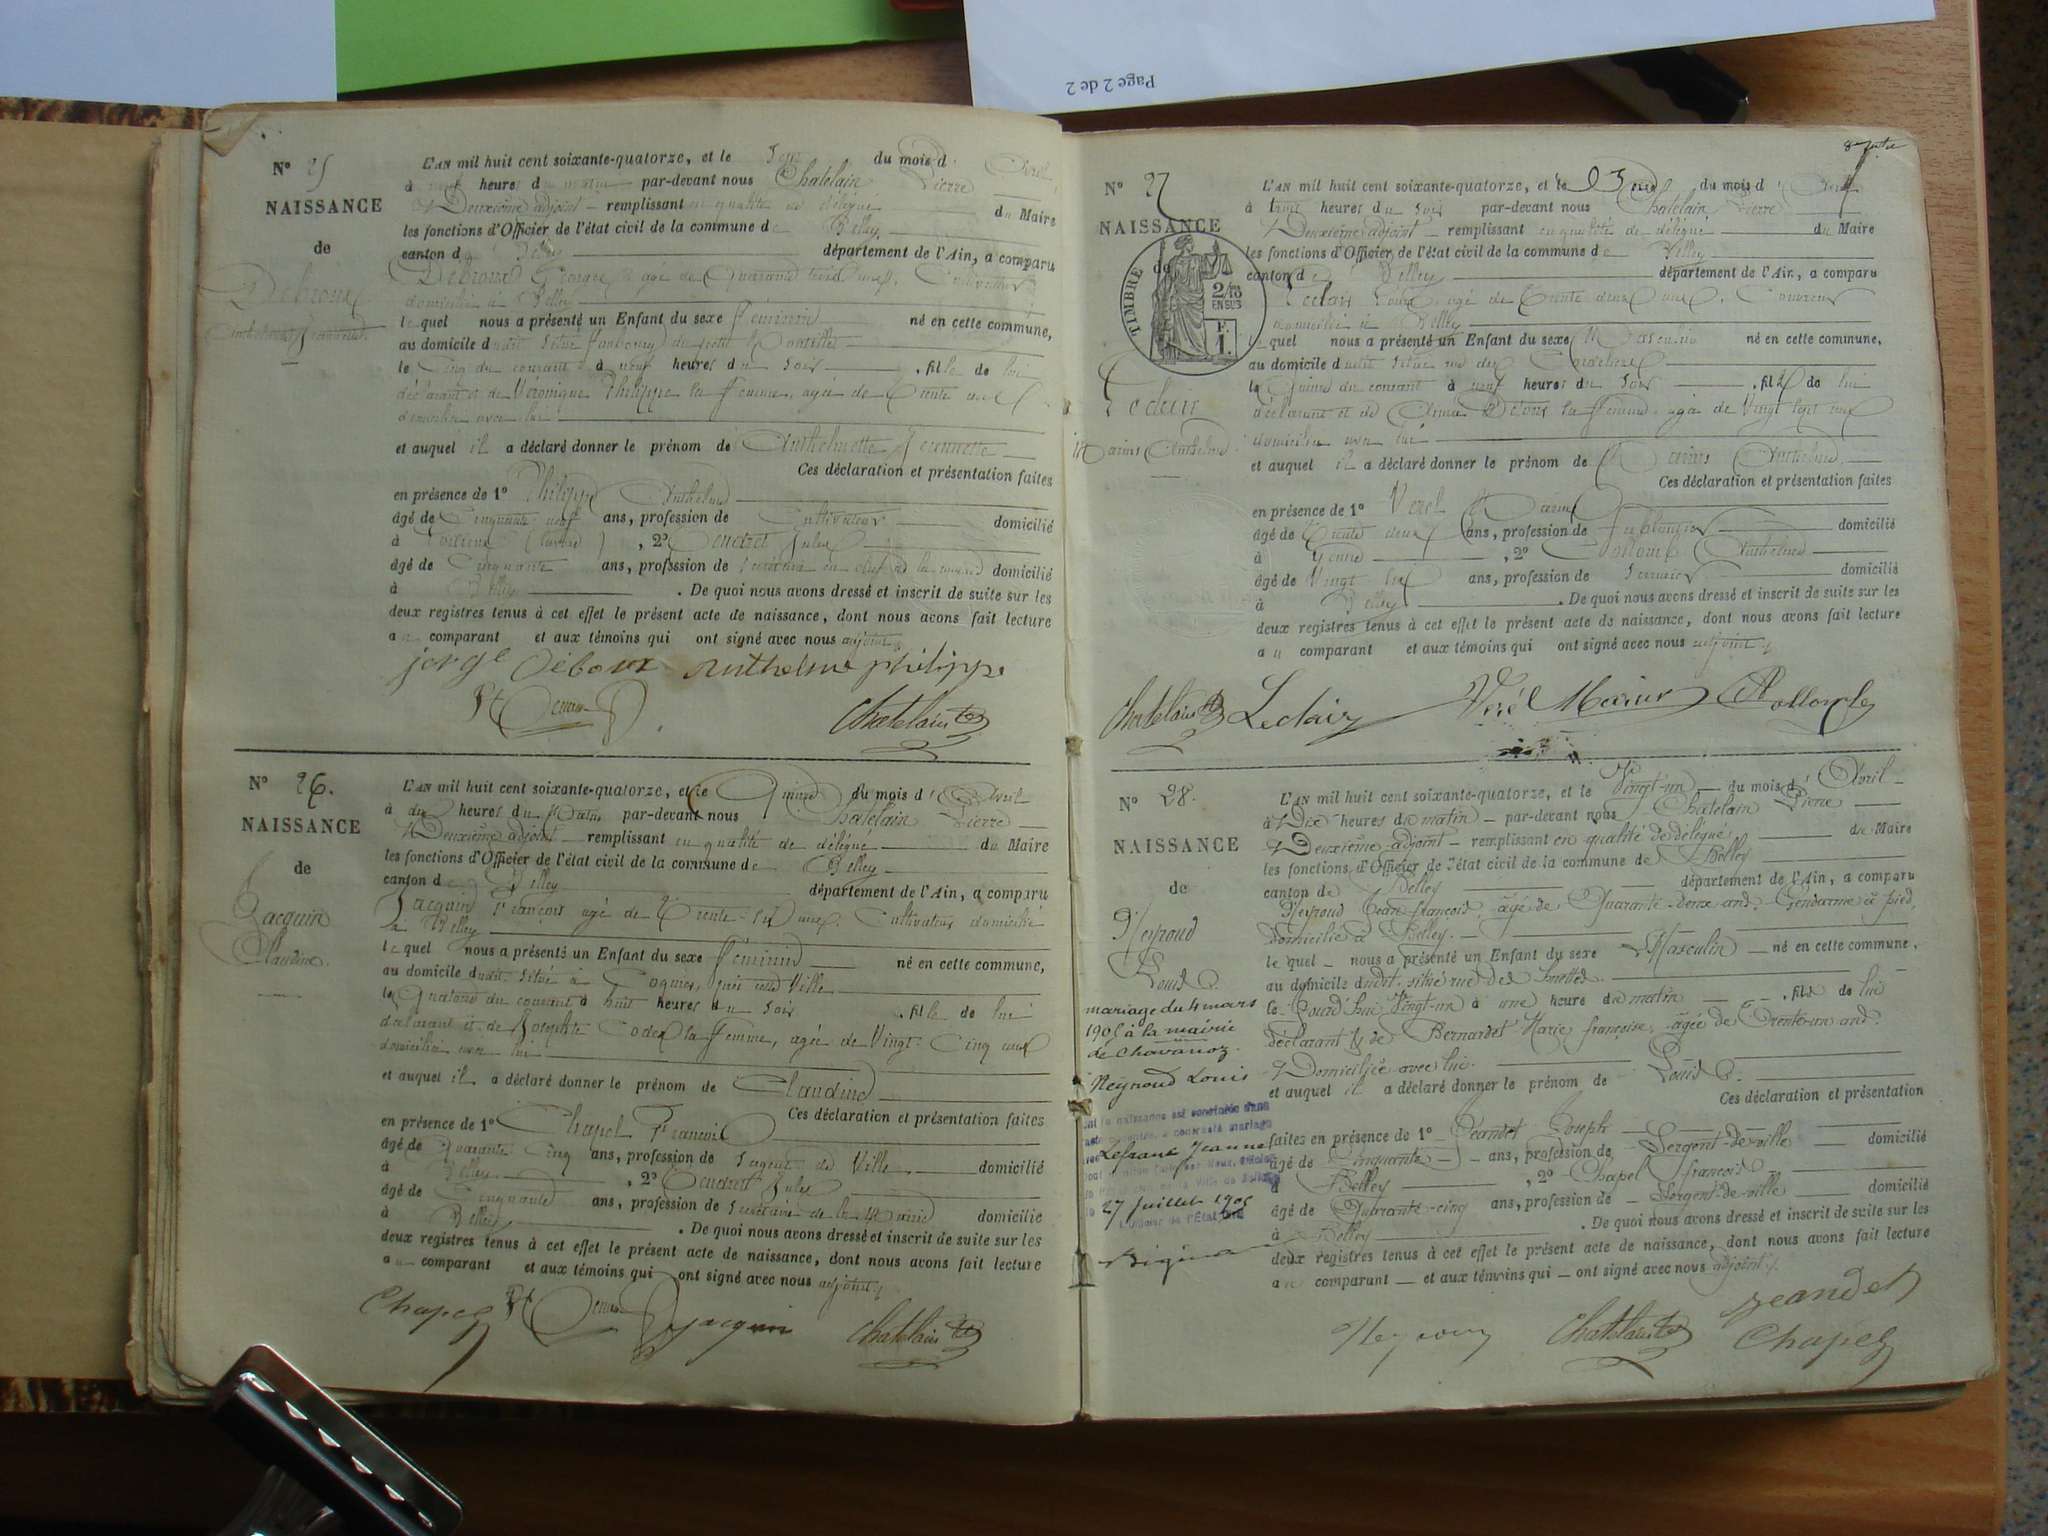 Page 2 de 2
N° 25
NAISSANCE
de
Debroux
L'AN mil huit cent soixante-quatorze, et le Sept du mois d' Avril
à neuf heures du matin par-devant nous Chatelain Pierre
Deuxième adjoint remplissant en qualité de délégué du Maire
les fonctions d'Officier de l'état civil de la commune de Belley
canton de Belley département de l'Ain, a comparu
âgé de Quarante trois ans, Cultivateur
domicilié à Belley
lequel nous a présenté un Enfant du sexe féminin né en cette commune,
au domicile dudit situé faubourg
le Cinq du courant à neuf heures du Soir, fille de lui
déclarant et de Véronique Philippe sa femme, agée de Trente ans
domiciliée avec lui
et auquel il a déclaré donner le prénom de Anthelmette Jeannette
Ces déclaration et présentation faites
en présence de 1° Philippe Anthelme
âgé de Cinquante neuf ans, profession de Cultivateur domicilié
à , 2° Gendret Jules
âgé de Cinquante ans, profession de Secrétaire en chef de la mairie domicilié
à Belley. De quoi nous avons dressé et inscrit de suite sur les
deux registres tenus à cet effet le présent acte de naissance, dont nous avons fait lecture
au comparant et aux témoins qui ont signé avec nous adjoint
anthelme philippe
Chatelain
N° 26.
NAISSANCE
de
Jacquin
Claudine.
L'AN mil huit cent soixante-quatorze, et le Quinze du mois d' Avril
à dix heures du matin par-devant nous Chatelain Pierre
Deuxième adjoint remplissant en qualité de délégué du Maire
les fonctions d'Officier de l'état civil de la commune de Belley
canton de Belley département de l'Ain, a comparu
Jacquin François agé de Trente six ans, Cultivateur domicilié
à Belley
lequel nous a présenté un Enfant du sexe féminin né en cette commune,
au domicile dudit situé à près cette Ville
le Quatorze du courant à huit heures du Soir, fille de lui
déclarant et de Josephte sa femme, agée de Vingt Cinq ans
domiciliée avec lui
et auquel il a déclaré donner le prénom de Claudine
Ces déclaration et présentation faites
en présence de 1° Chapel François
âgé de Quarante Cinq ans, profession de Sergent de Ville domicilié
à Belley, 2° Gendret Jules
âgé de Cinquante ans, profession de Secrétaire de la Mairie domicilié
à Belley. De quoi nous avons dressé et inscrit de suite sur les
deux registres tenus à cet effet le présent acte de naissance, dont nous avons fait lecture
au comparant et aux témoins qui ont signé avec nous adjoint
Chapel jacquin Chatelain
N° 27
NAISSANCE
de
TIMBRE
2/10
EN SUS
F.
1.
Leclair
Marius Anthelme
L'AN mil huit cent soixante-quatorze, et le du mois d' Avril
à heures du Soir par-devant nous Chatelain Pierre
Deuxième adjoint remplissant en qualité de délégué du Maire
les fonctions d'Officier de l'état civil de la commune de Belley
canton de Belley département de l'Ain, a comparu
Leclair Louis agé de Trente deux ans,
domicilié à Belley
lequel nous a présenté un Enfant du sexe Masculin né en cette commune,
au domicile dudit situé rue des
le Quinze du courant à neuf heures du Soir, fils de lui
déclarant et de sa femme, agée de Vingt sept ans
domiciliée avec lui
et auquel il a déclaré donner le prénom de Marius Anthelme
Ces déclaration et présentation faites
en présence de 1° Verel Marius
âgé de Trente deux ans, profession de ferblantier domicilié
à Yenne, 2° Anthelme
âgé de Vingt six ans, profession de Serrurier domicilié
à Belley. De quoi nous avons dressé et inscrit de suite sur les
deux registres tenus à cet effet le présent acte de naissance, dont nous avons fait lecture
au comparant et aux témoins qui ont signé avec nous adjoint
Chatelain Leclair Verel Marius
N° 28.
NAISSANCE
de
Neyroud
Louis
mariage du 4 mars
1905 à la mairie
de Chavanoz.
Neyroud Louis
Lefranc Jeanne
27 juillet 1905
L'AN mil huit cent soixante-quatorze, et le Vingt-un du mois d' Avril
à Dix heures du matin par-devant nous Chatelain Pierre
Deuxième adjoint remplissant en qualité de délégué du Maire
les fonctions d'Officier de l'état civil de la commune de Belley
canton de Belley département de l'Ain, a comparu
Neyroud Jean françois, âgé de Quarante-deux ans, Gendarme à pied,
domicilié à Belley.
lequel nous a présenté un Enfant du sexe Masculin né en cette commune,
au domicile dudit situé rue des
le Jourd'hui Vingt-un à une heure du matin, fils de lui
déclarant & de Bernardet Marie françoise, âgée de Trente-un ans.
Domiciliée avec lui.
et auquel il a déclaré donner le prénom de Louis.
Ces déclaration et présentation
faites en présence de 1° Jeandet Joseph
âgé de Cinquante ans, profession de Sergent-de-ville domicilié
à Belley, 2° Chapel françois
âgé de Quarante-cinq ans, profession de Sergent-de-ville domicilié
à Belley. De quoi nous avons dressé et inscrit de suite sur les
deux registres tenus à cet effet le présent acte de naissance, dont nous avons fait lecture
au comparant et aux témoins qui ont signé avec nous adjoint.
Neyroud Chatelain Jeandet
Chapel